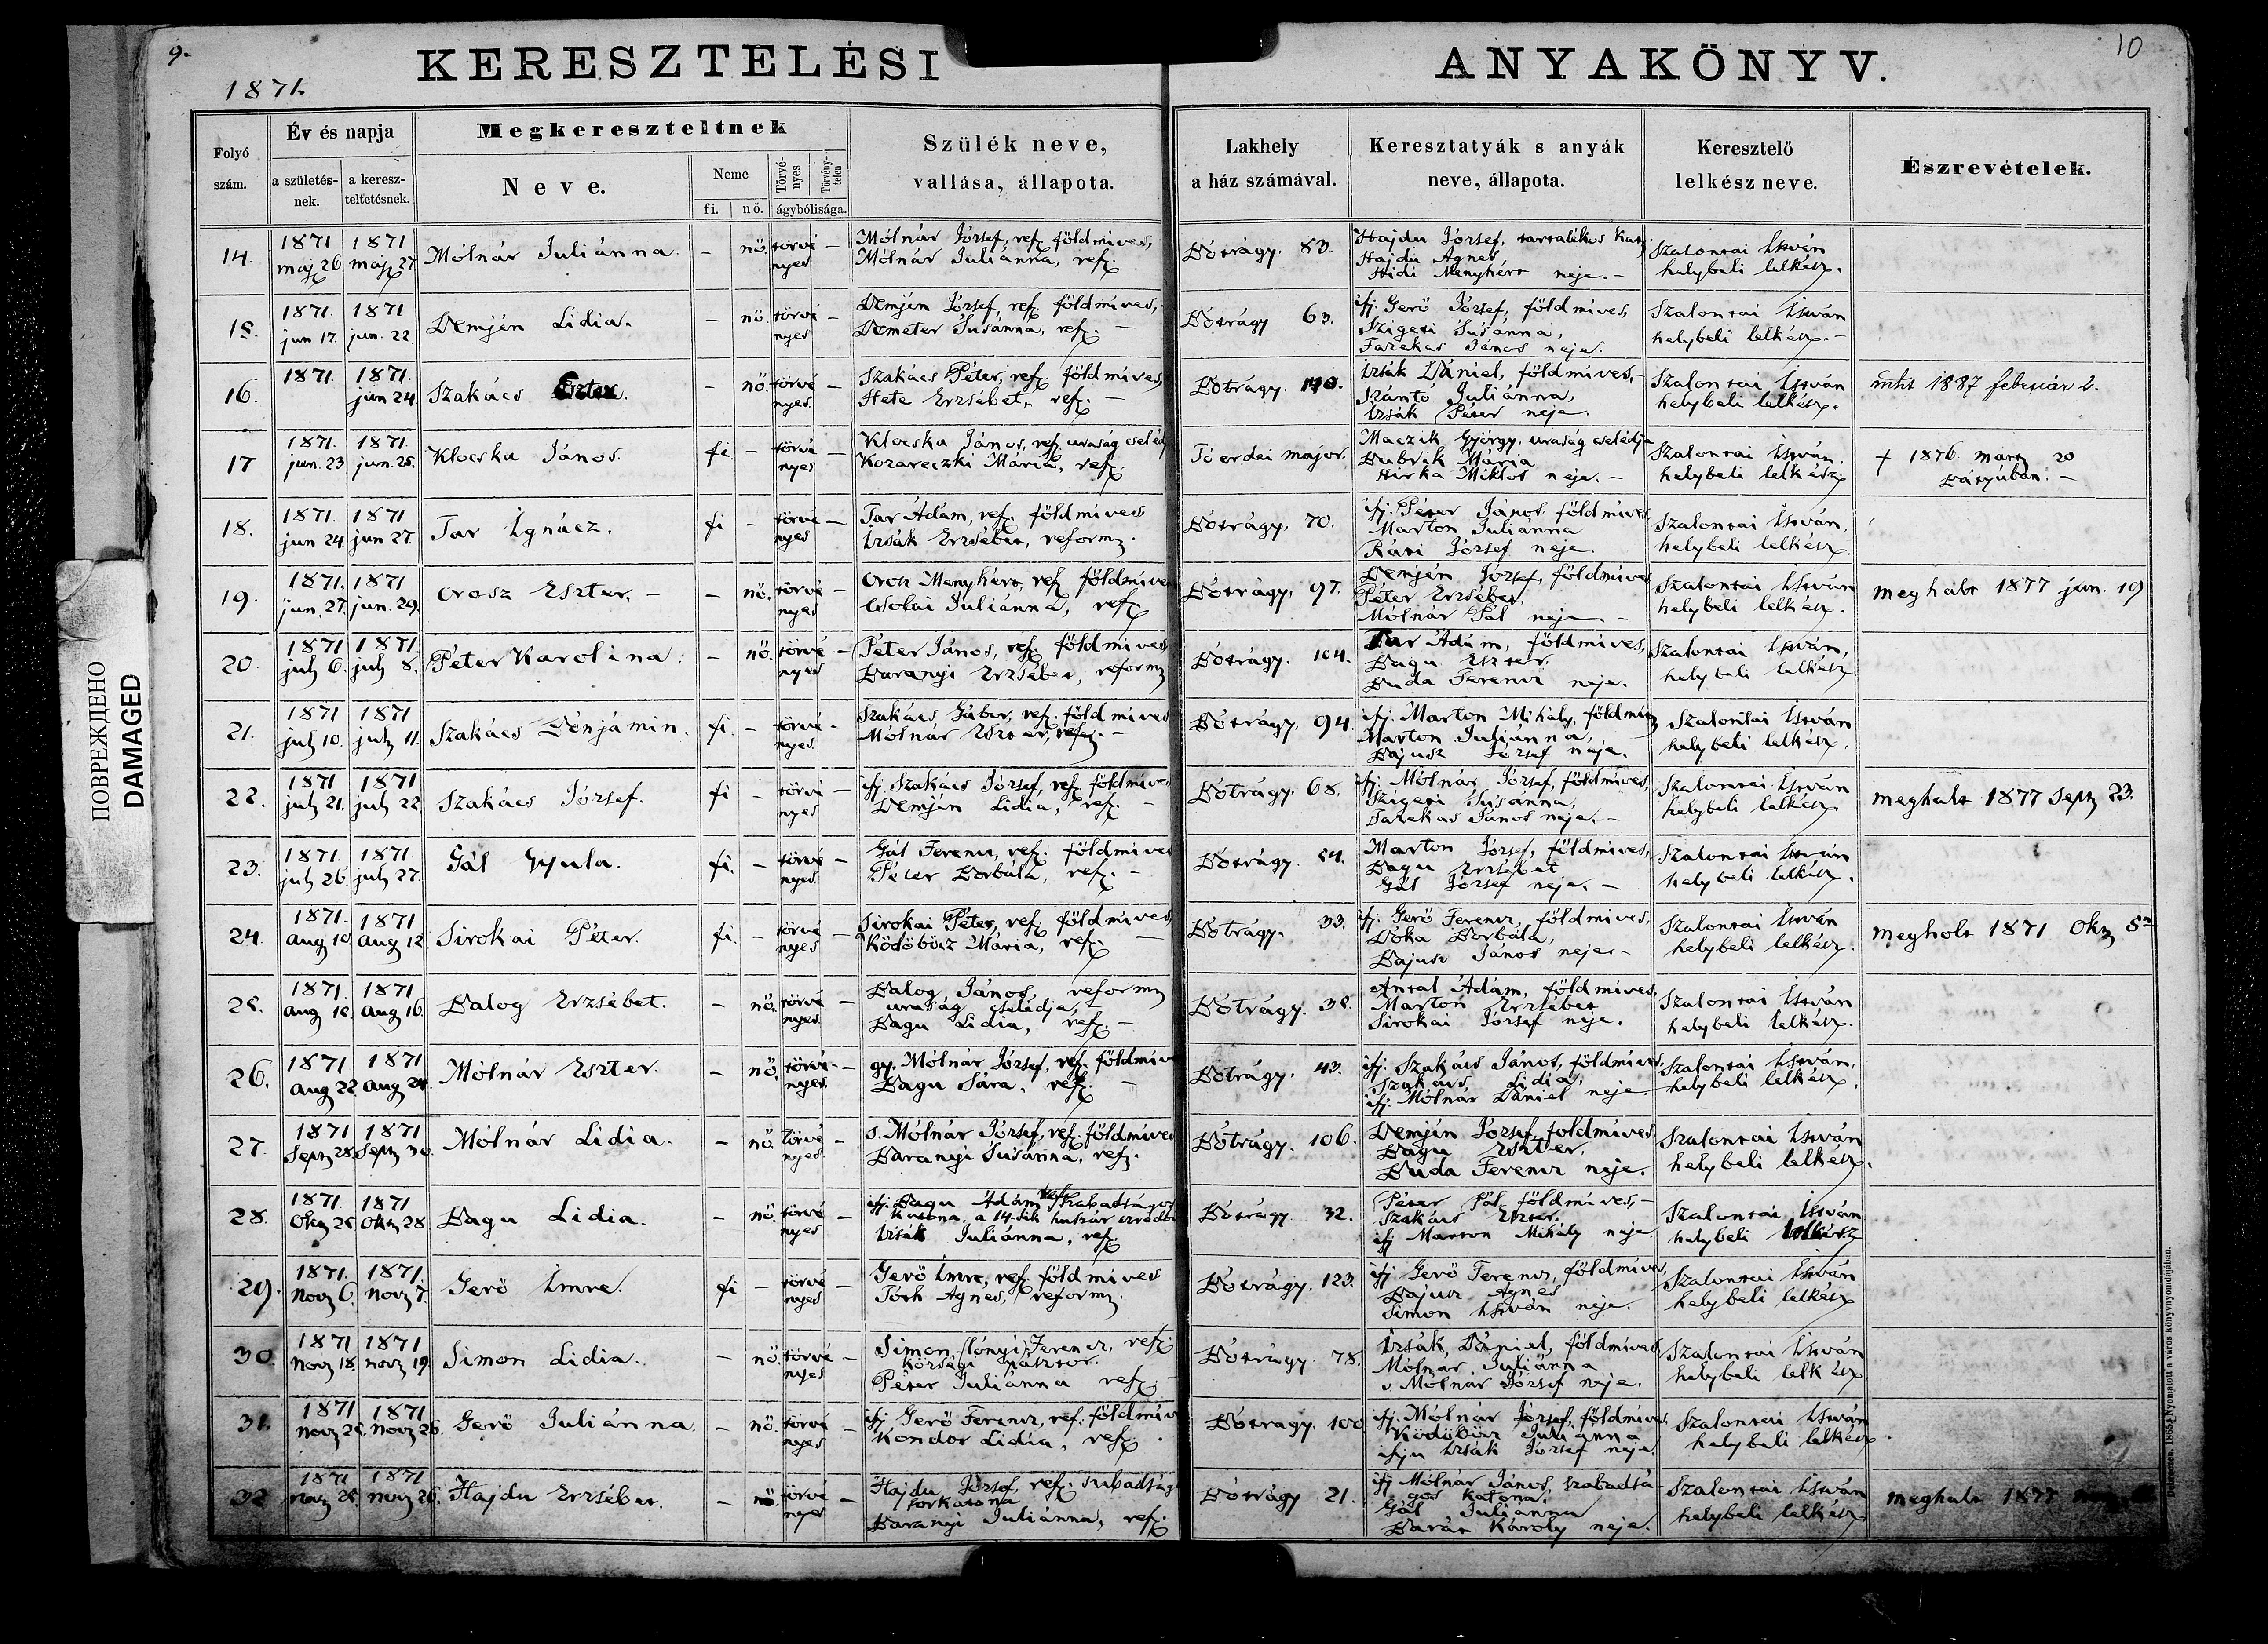 9.
10
KERESZTELÉSI ANYAKÖNYV.
1871.
Folyó szám.
Év és napja
a születés-nek.
a keresz-teltetésnek.
Megkereszteltnek
Neve.
Neme
fi.
nő.
Törvé-nyes
Törvény-telen
ágybólisága.
Szülék neve, vallása, állapota.
Lakhely a ház számával.
Keresztatyák s anyák neve, állapota.
Keresztelő lelkész neve.
Észrevételek.
14. 1871 máj 26 1871 máj 27 Mólnár Juliánna. – nő. törvé nyes – Mólnár József, ref. földmives, Mólnár Juliánna, ref. Bótrágy. 83. Hajdu József, tartalékos Hajdu Ágnes Hidi Menyhért neje. – Szalontai István helybeli lelkész.
15. 1871. jun 17. 1871 jun. 22. Demjén Lidia. – nő. törvé nyes – Demjén József, ref. földmives, Demeter Susánna, ref. – Bótrágy 63. ifj. Gerő József, földmives, Szigeti Susánna, Fazekas János neje. Szalontai István helybeli lelkész. –
16. 1871. 1871. jun 24. Szakács Eszter. – nő. törvé nyes. – Szakács Péter, ref. földmives, Hete Erzsébet, ref. – Bótrágy. 140. Izsák Dániel, földmives, – Szántó Juliánna, Izsák Péter neje. Szalontai István helybeli lelkész. mht 1887 február 2.
17 1871. jun. 23 1871. jun. 25. Klocsku János. fi – törvé nyes – Klocsku János, ref. uraság cseléd Kozareczki Mária, ref. Tó erdei major. Maczik György, uraság cselédje Dubrik Mária Hirka Miklós neje. – Szalontai István, helybeli lelkész + 1876. marz 20 Bátyúban. –
18. 1871. jun 24. 1871 jun 27. Tar Ignácz. fi – törvé nyes – Tar Ádám, ref. földmives Izsák Erzsébet, reform. Bótrágy. 70. ifj. Péter János földmives, Marton Juliánna Ráti József neje. Szalontai István, helybeli lelkész.
19. 1871. jun. 27. 1871 jun. 29. Orosz Eszter. – – nő. törvé nyes – Orosz Menyhért, ref földmives Csolai Juliánna, ref. Bótrágy, 97. Demjén József, földmives Péter Erzsébet, Mólnár Pál neje. – Szalontai István helybeli lelkész. meghalt 1877 jun. 19
20. 1871 july 6. 1871. july 8. Péter Karolina. – nő. törvé nyes – Péter János, ref. földmives Baranyi Erzsébet, reform Bótrágy. 104. Tar Ádám, földmives, Bagu Eszter. Buda Ferencz neje. Szalontai István, helybeli lelkész
21. 1871 july 10. 1871 july 11. Szakács Bénjámin. fi. – törvé nyes. – Szakács Gábor, ref. földmives Mólnár Eszter, ref. – Bótrágy, 94. ifj. Marton Mihály, földmives Marton Juliánna, Bajusz József neje. Szalontai István helybeli lelkész.
22. 1871 july 21. 1871 july 22 Szakács József. fi – törvé nyes – ifj. Szakács József, ref. földmives Demjén Lidia, ref. – Bótrágy. 68. ifj. Mólnár József, földmives, Szigeti Susánna, Fazekas János neje. – Szalontai István helybeli lelkész meghalt 1877 Sept 23.
23. 1871. july 26. 1871. july 27. Gál Gyula. fi. – törvé nyes. – Gál Ferencz, ref. földmives Péter Borbála, ref. – Bótrágy. 24. Marton József, földmives, Bagu Erzsébet Gál József neje. – Szalontai István helybeli lelkész.
24. 1871. aug 10. 1871. aug 12. Sirokai Péter. fi. – törvé nyes – Sirokai Péter, ref. földmives, Ködöböcz Mária, ref. – Bótrágy. 33. ifj. Gerő Ferencz, földmives, Dóka Borbála, Bajusz János neje. – Szalontai István helybeli lelkész. megholt 1871 Okt 5n
25. 1871. aug 15. 1871 aug 16. Balog Erzsébet. – nő. törvé nyes. – Balog János, reform uraság cselédje, Bagu Lidia, ref. – Bótrágy. 38. Antal Ádám, földmives, Marton Erzsébet Sirokai József neje. Szalontai István helybeli lelkész.
26. 1871 aug 22. 1871 aug 24. Mólnár Eszter. – nő. törvé nyes. – gy. Mólnár József, ref. földmives Bagu Sára, ref. – Bótrágy. 43. ifj. Szakács János, földmives, Szakács Lidia, ifj. Mólnár Dániel neje. Szalontai István, helybeli lelkész.
27. 1871 Sept 28. 1871 Sept 30. Mólnár Lidia. – nő. törvé nyes. – s. Mólnár József, ref. földmives Baranyi Susánna, ref. Bótrágy. 106. Demjén József, földmives Bagu Eszter. Buda Ferencz neje. Szalontai István helybeli lelkész.
28. 1871. Okt 25. 1871 Okt 28. Bagu Lidia. – nő. törvé nyes – ifj. Bagu Ádám ref. szabadságos katona a 14-dik huszár ezredbe Izsák Juliánna, ref. Bótrágy. 32. Péter Pál, földmives, – Szakács Eszter. ifj. Marton Mihály neje Szalontai István helybeli lelkész
29. 1871. nov 6. 1871. nov 7. Gerő Imre. fi – törvé nyes – Gerő Imre, ref. földmives Tóth Ágnes, reform. Bótrágy. 123. ifj Gerő Ferencz, földmives, Bajusz Ágnes Simon István neje. Szalontai István helybeli lelkész
30. 1871 nov 18. 1871 nov 19. Simon Lidia. – nő. törvé nyes – Simon (lónyi) Ferencz, ref. községi pásztor. Péter Juliánna ref. – Bótrágy. 78. Izsák Dániel, földmives, Mólnár Juliánna s Mólnár József neje. Szalontai István helybeli lelkész
31. 1871 nov 25. 1871 nov 26. Gerő Juliánna – nő. törvé nyes – ifj Gerő Ferencz, ref. földmives Kondor Lidia, ref. Bótrágy. 100. ifj. Mólnár József, földmives. Ködöböcz Juliánna ifju Izsák József neje. Szalontai István helybeli lelkész.
32 1871 nov 25. 1871 nov 26. Hajdu Erzsébet. – nő. törvé nyes – Hajdu József, ref. szabadságos katona Baranyi Juliánna, ref. Bótrágy 21. ifj Mólnár János, szabadságos katona. Gál Juliánna Baráz Károly neje. Szalontai István helybeli lelkész meghalt 1877
ПОВРЕЖДЕНО
DAMAGED
Debreczen. 1865. Nyomatott a város könyvnyomdájában.